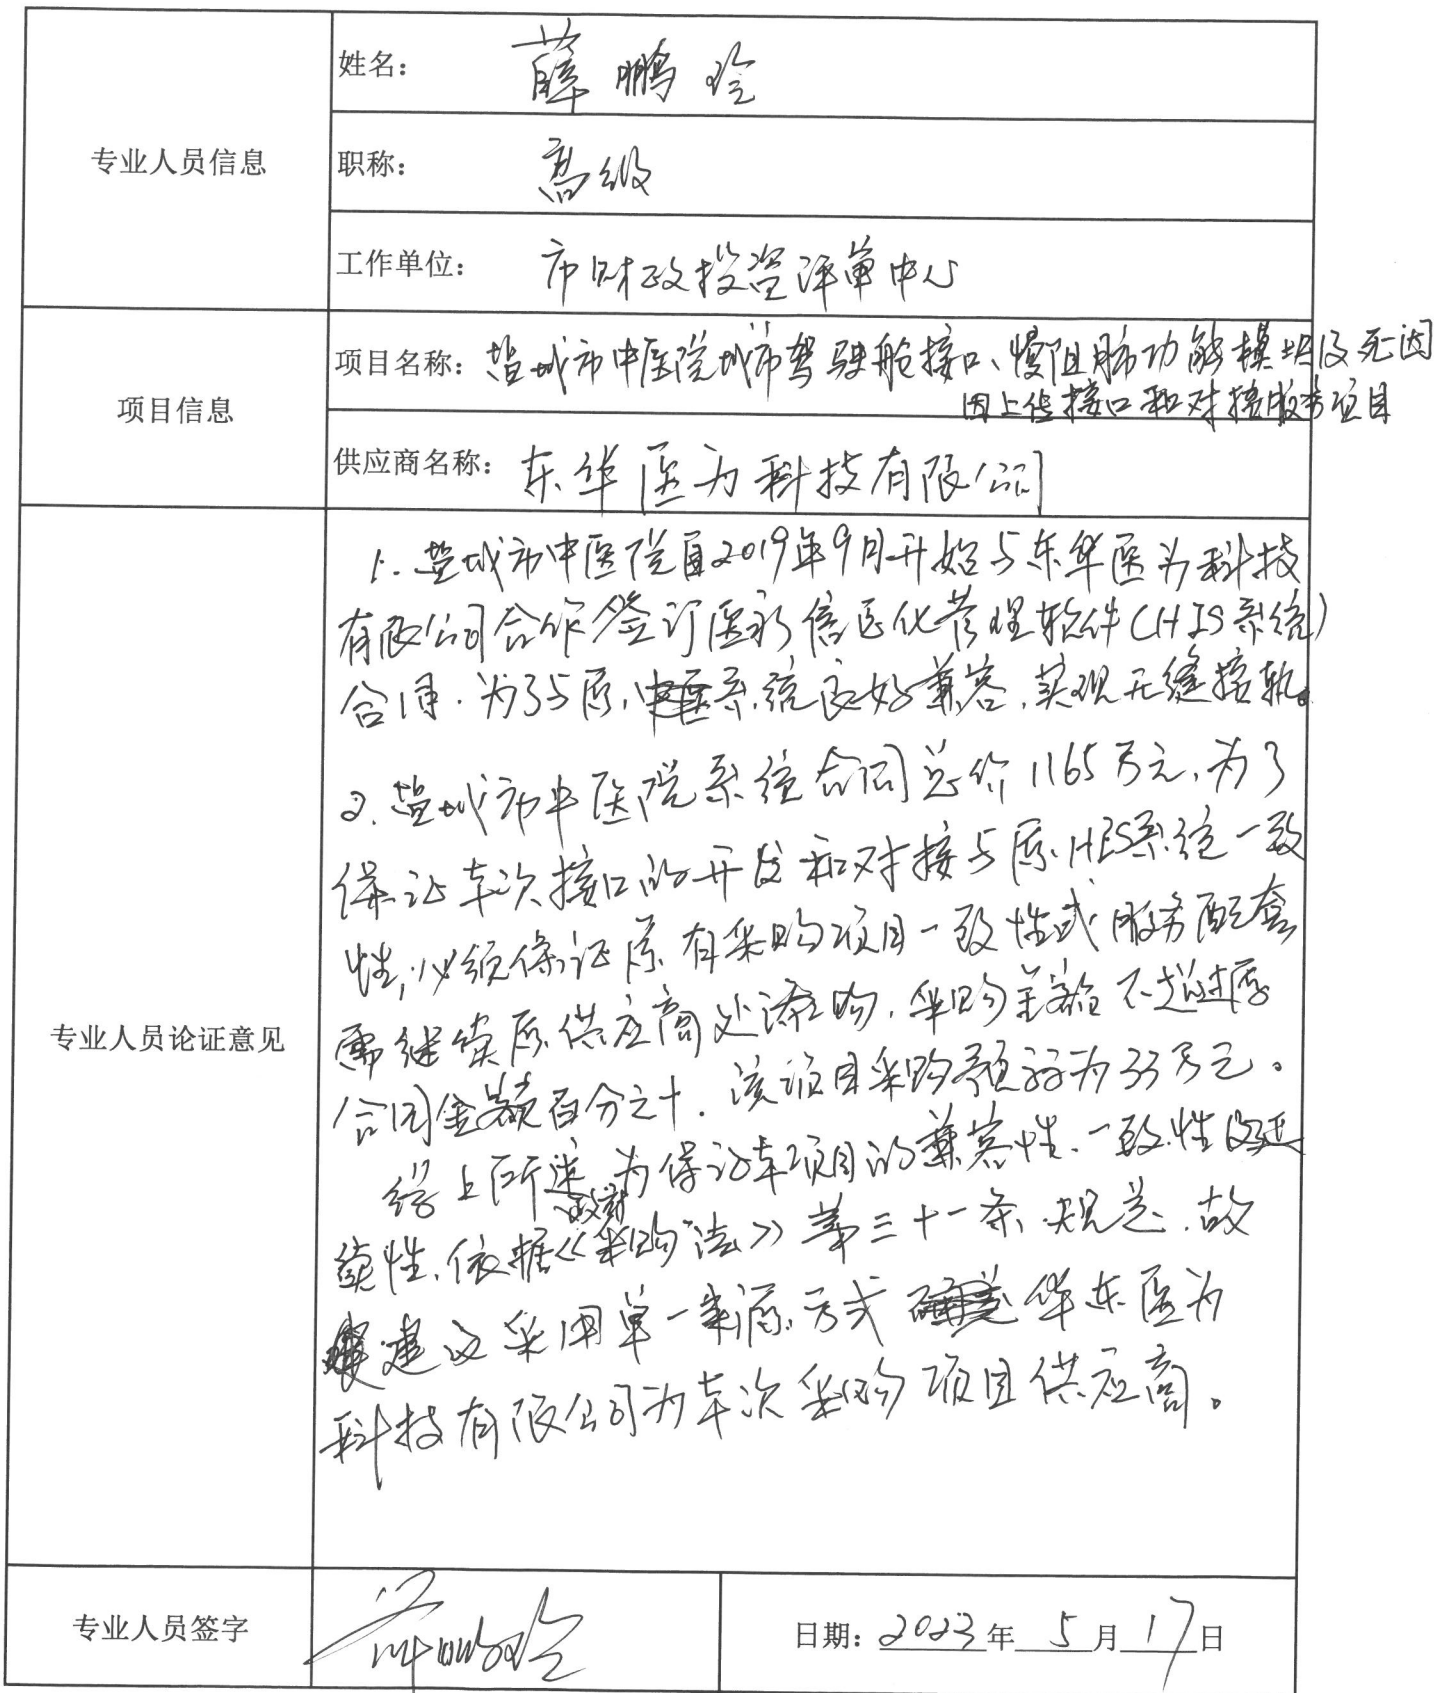 专业人员信息
姓名: 薛鹏玲
职称: 高级
工作单位: 市财政投资评审中心
项目信息
项目名称: 盐城市中医院城市驾驶舱接口、慢阻肺功能模块及死因
因上传接口和对接服务项目
供应商名称: 东华医为科技有限公司
专业人员论证意见
1. 盐城市中医院自2019年9月开始与东华医为科技
有限公司合作签订医疗信息化管理软件(HIS系统)
合同.为了与原系统良好兼容,实现无缝接轨。
2. 盐城市中医院系统合同总价1165万元,为了
保证本次接口的开发和对接与原HIS系统一致
性,必须保证原有采购项目一致性或服务配套
需继续原供应商处添购,采购金额不超过原
合同金额百分之十.该项目采购预算为33万元。
综上所述为保证本项目的兼容性、一致性及延
续性,依据《政府采购法》第三十一条规定,故
建议采用单一来源方式华东医为
科技有限公司为本次采购项目供应商。
专业人员签字
薛鹏玲
日期: 2023年 5月 17日